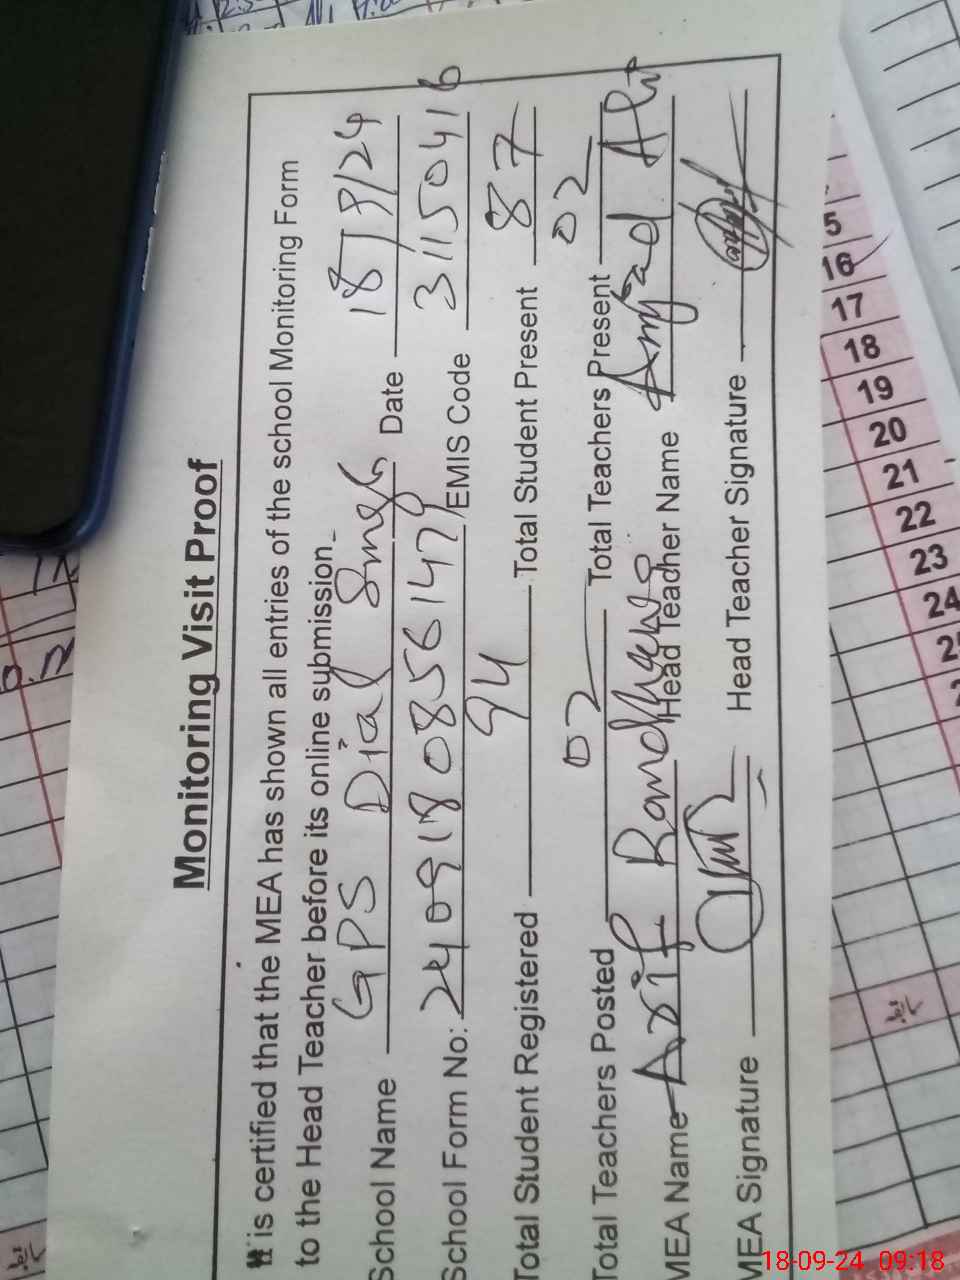 Monitoring Visit Proof
It is certified that the MEA has shown all entries of the school Monitoring Form
to the Head Teacher before its online submission.
School Name GPS Dial Singh Date 18/9/24
School Form No: 2409180856147 EMIS Code 31150416
Total Student Registered 94 Total Student Present 87
Total Teachers Posted 02 Total Teachers Present 02
MEA Name Asif Head Teacher Name Amjad Ali
MEA Signature Head Teacher Signature
5
16
17
18
19
20
21
22
23
24
18-09-24 09:18